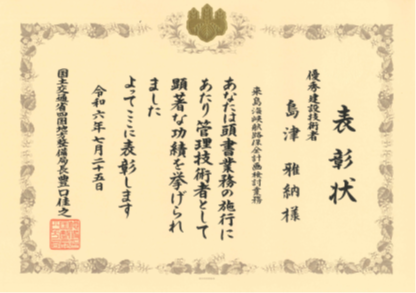 表彰状
優秀建設技術者
島津雅納様
来島海峡航路保全計画検討業務
あなたは頭書業務の施行に
あたり管理技術者として
顕著な功績を挙げられ
ました
よってここに表彰します
令和六年七月二十五日
国土交通省四国地方整備局長豊口佳之